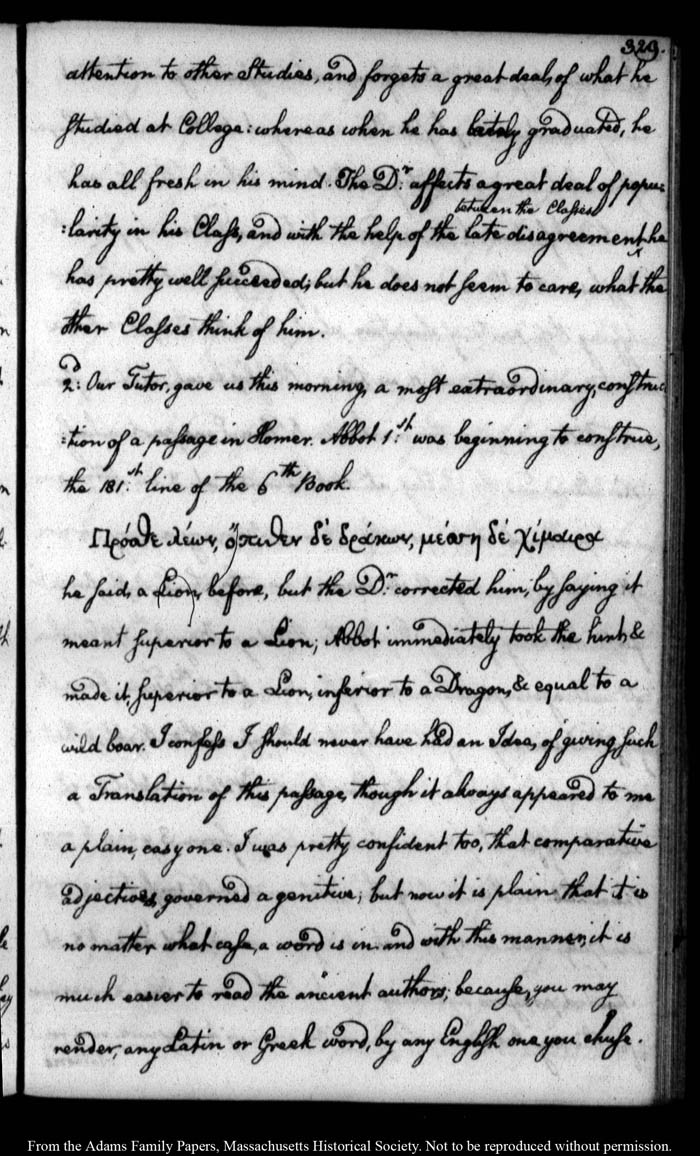 329.
attention to other Studies, and forgets a great deal, of what he
studied at College: whereas when he has lately graduated, he
has all fresh in his mind. The Dr. affects a great deal of popu:
between the Classes
:larity in his Class, and with the help of the late disagreement he
has pretty well succeeded; but he does not seem to care, what the
other Classes think of him.
2d: Our Tutor, gave us this morning, a most extraordinary, construc
:tion of a passage in Homer. Abbot 1st: was beginning to construe,
the 181st: line of the 6th Book.
Πρόσθε λέων, ὄπιθεν δέ δράκων, μέσση δέ χίμαιρα
he said, a Lion, before, but the Dr. corrected him, by saying it
meant superior to a Lion; Abbot immediately took the hint, &
made it, superior to a Lion, inferior to a Dragon, & equal to a
wild boar. I confess I should never have had an Idea, of giving such
a Translation of this passage, though it always appeared to me
a plain, easy one. I was pretty confident too, that comparative
adjectives, governed a genitive; but now it is plain that it is
no matter what case, a word is in. and with this manner, it is
much easier to read the ancient authors; because, you may
render, any Latin or Greek word, by any English one, you chuse.
From the Adams Family Papers, Massachusetts Historical Society. Not to be reproduced without permission.